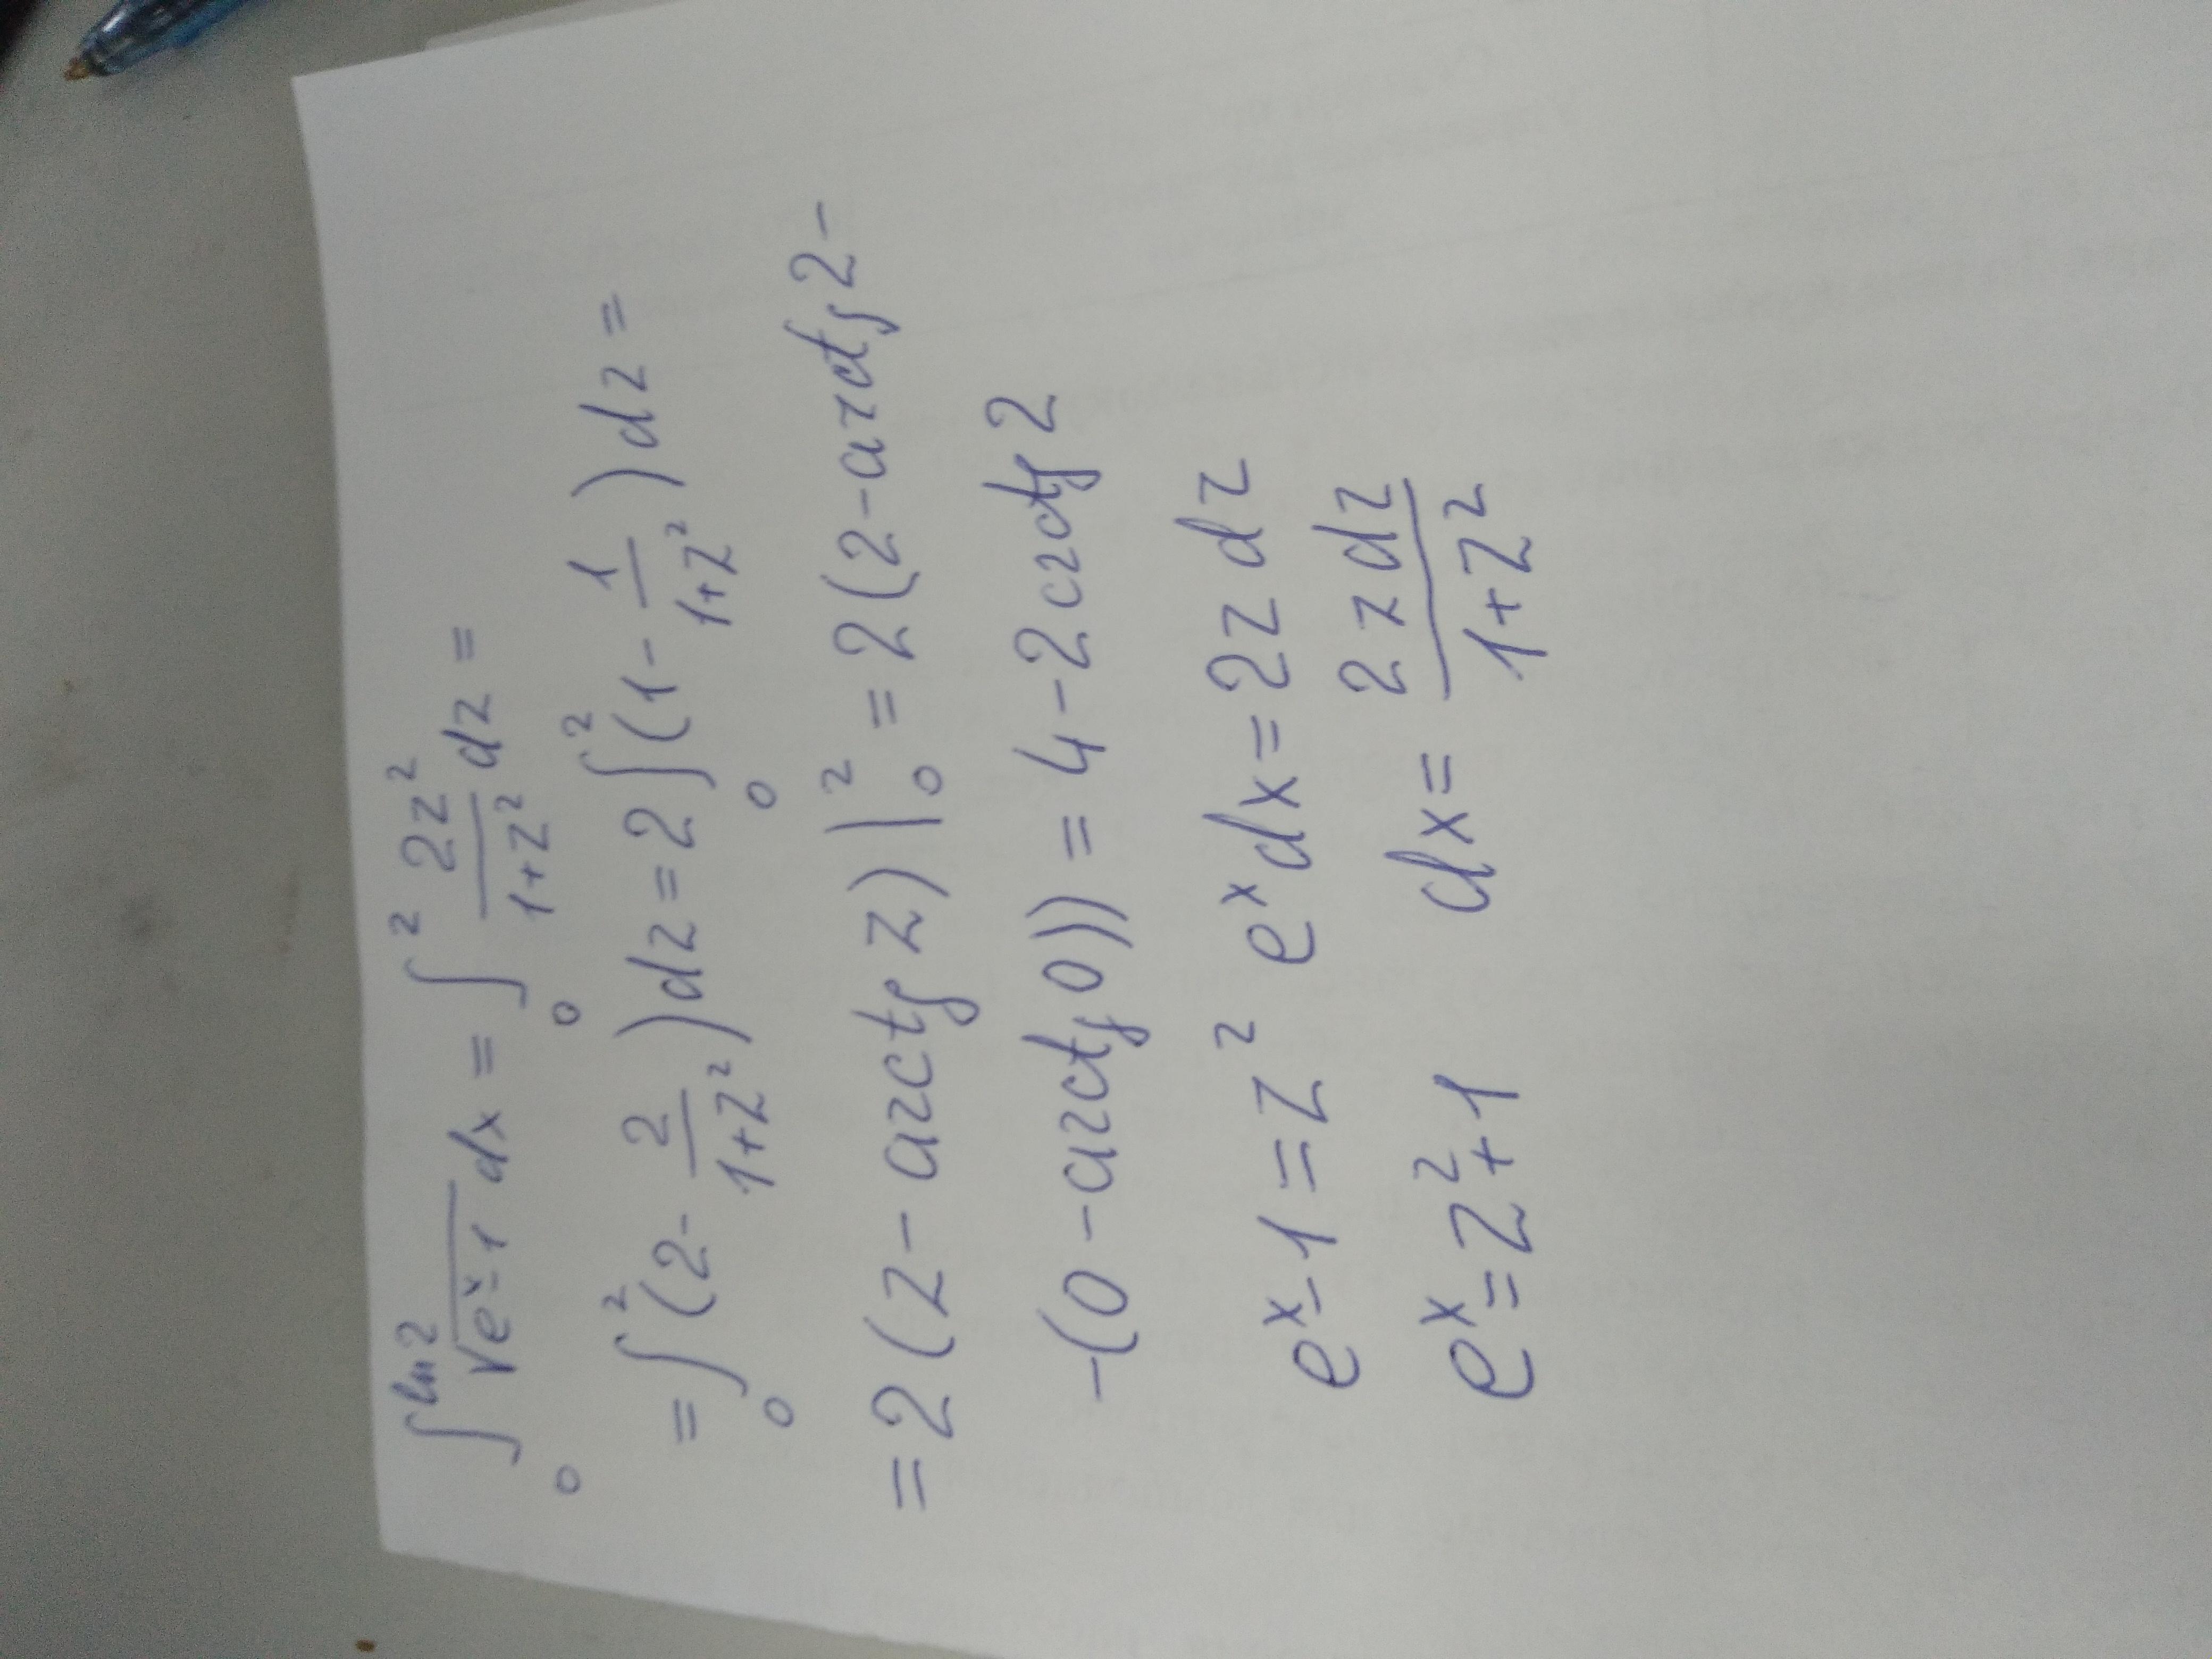 ∫₀^{ln 2} √(eˣ-1) dx = ∫₀² 2z²/(1+z²) dz =
= ∫₀² (2 - 2/(1+z²)) dz = 2 ∫₀² (1 - 1/(1+z²)) dz =
= 2 (z - arctg z) |₀² = 2 (2 - arctg 2 -
- (0 - arctg 0)) = 4 - 2 arctg 2
eˣ - 1 = z² eˣ dx = 2z dz
eˣ = z² + 1 dx = 2z dz/(1+z²)